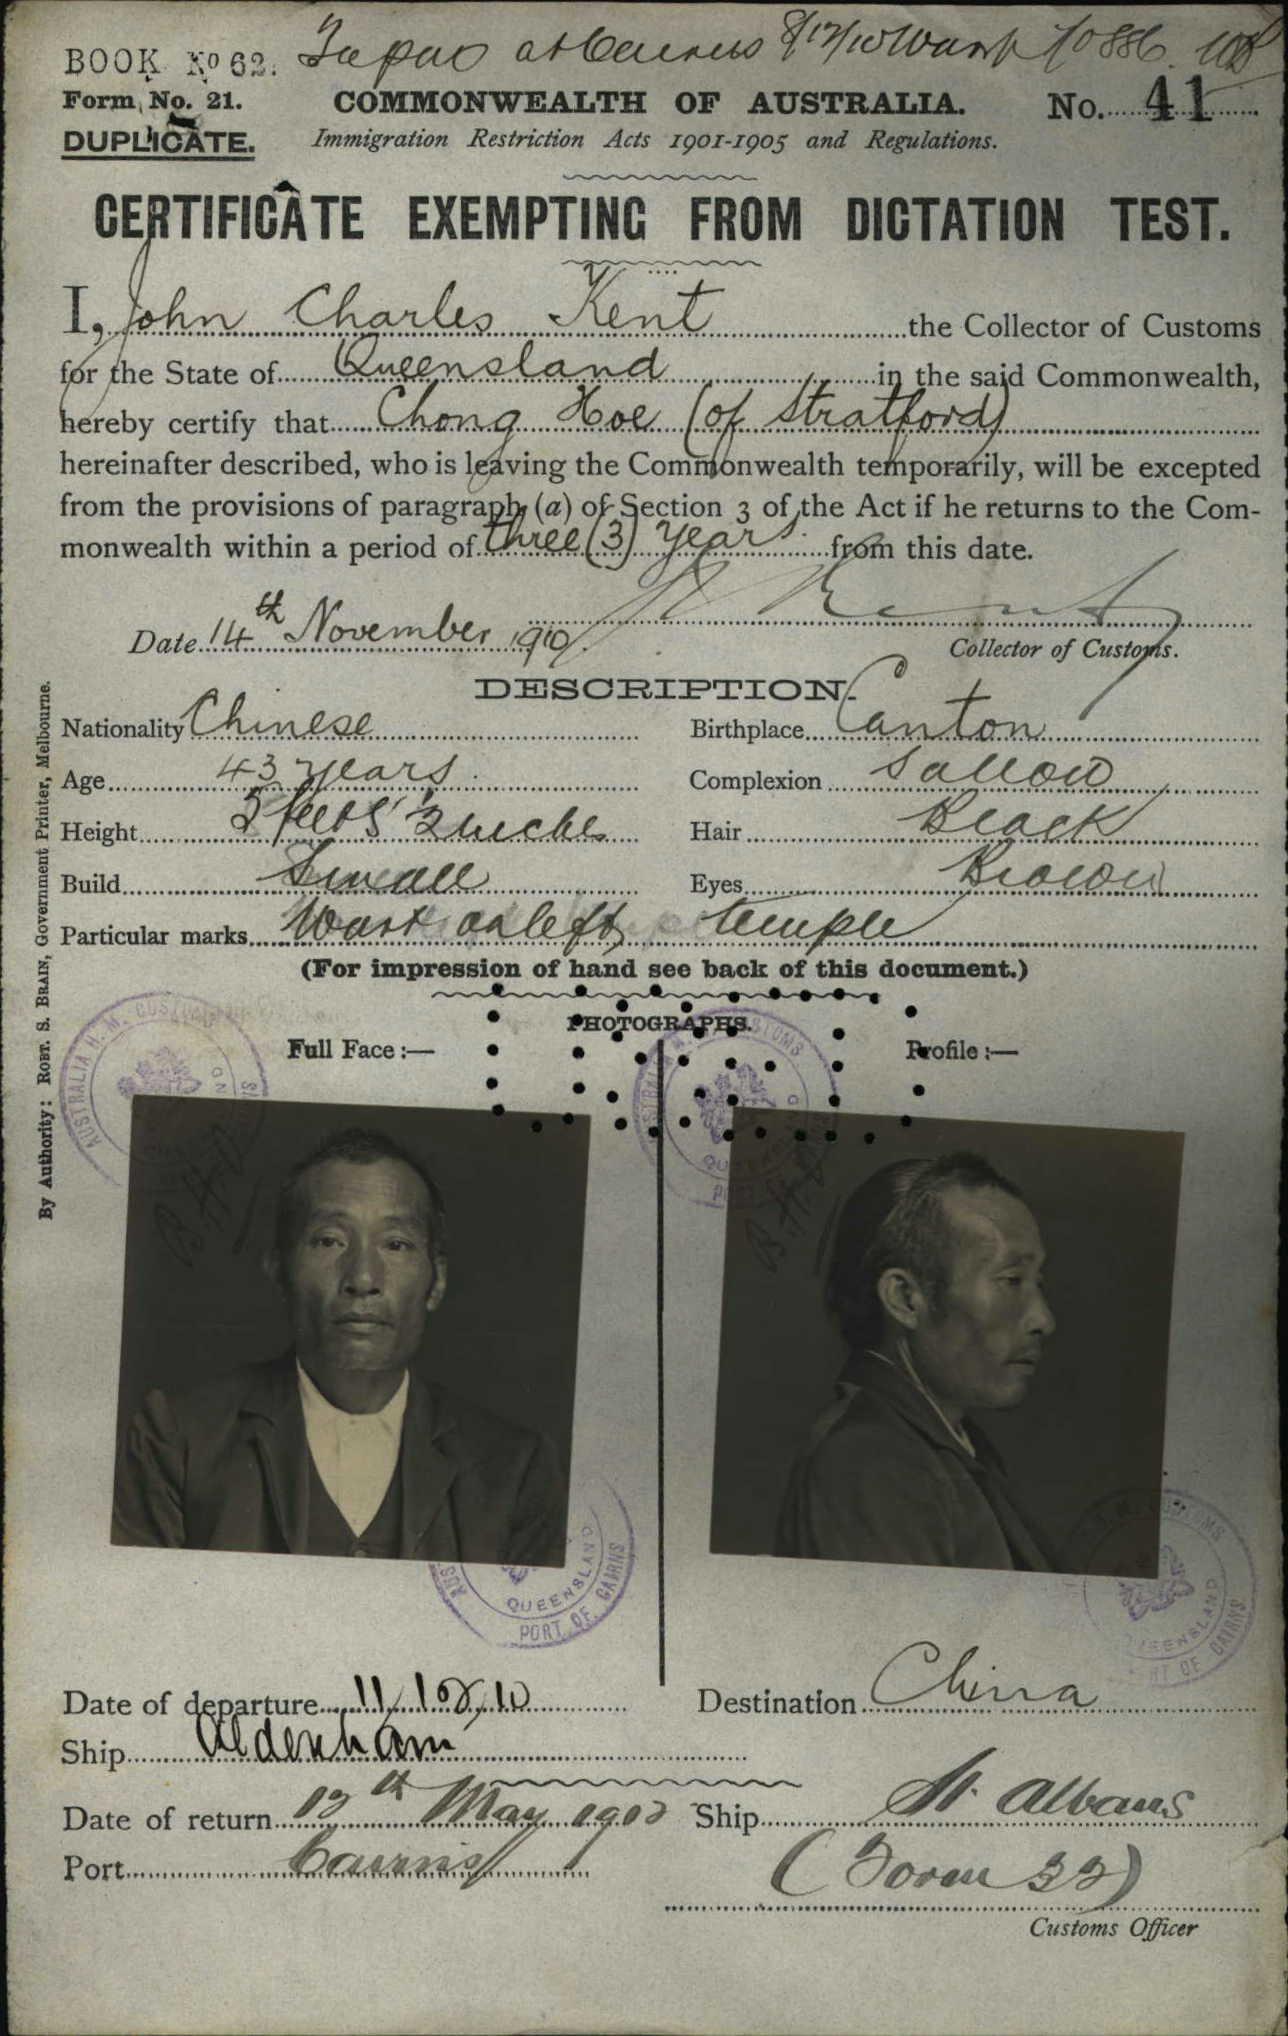 BOOK No 62.
Form No. 21.
DUPLICATE.
COMMONWEALTH OF AUSTRALIA.
No. 41
Immigration Restriction Acts 1901-1905 and Regulations.
CERTIFICATE EXEMPTING FROM DICTATION TEST.
I, John Charles Kent the Collector of Customs
for the State of Queensland in the said Commonwealth,
hereby certify that Chong Hoe (of Stratford)
hereinafter described, who is leaving the Commonwealth temporarily, will be excepted
from the provisions of paragraph (a) of Section 3 of the Act if he returns to the Com-
monwealth within a period of three (3) years from this date.
Date 14th November 1910.
Collector of Customs.
DESCRIPTION.
Nationality Chinese Birthplace Canton
Age 43 years. Complexion Sallow
Height 5 feet Inches Hair Black
Build Small Eyes Brown
Particular marks Wart on left temple
(For impression of hand see back of this document.)
PHOTOGRAPHS.
Full Face :— Profile :—
By Authority: ROBT. S. BRAIN, Government Printer, Melbourne.
AUSTRALIA H.M. CUSTOMS
QUEENSLAND
PORT OF CAIRNS
QUEENSLAND
PORT OF CAIRNS
Date of departure 11/12/10 Destination China
Ship Aldenham
Date of return 12th May Ship St. Albans
Port Cairns (Form 32)
Customs Officer